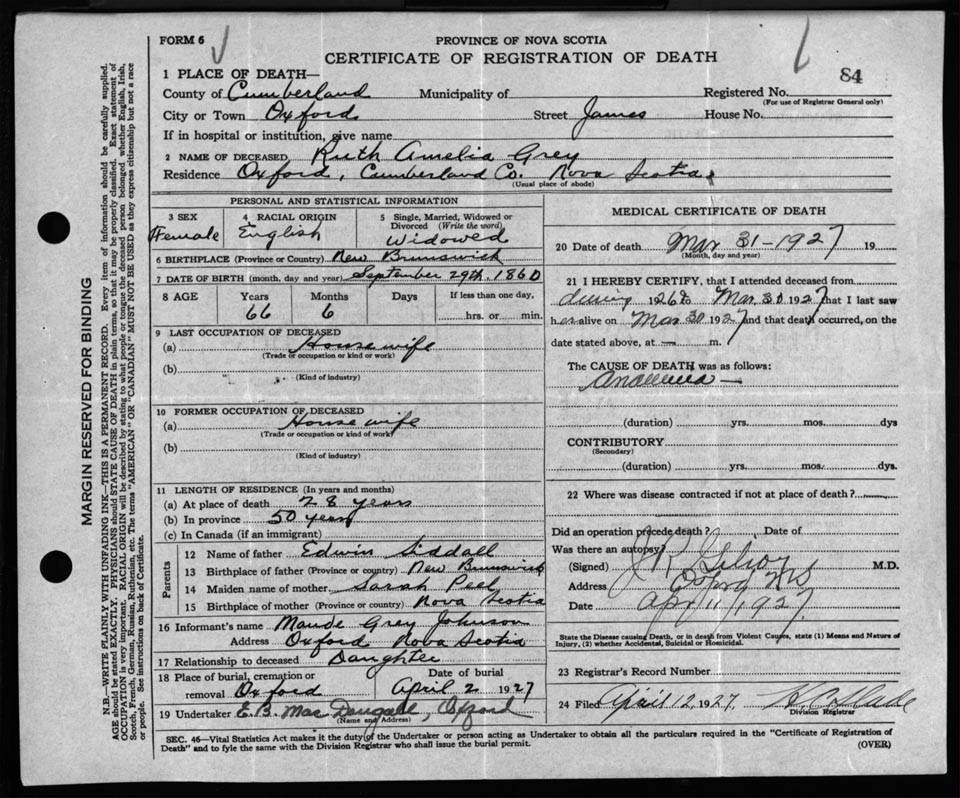 FORM 6
PROVINCE OF NOVA SCOTIA
CERTIFICATE OF REGISTRATION OF DEATH
84
1 PLACE OF DEATH—
County of Cumberland Municipality of Registered No.
(For use of Registrar General only)
City or Town Oxford Street James House No.
If in hospital or institution, give name
2 NAME OF DECEASED Ruth Amelia Grey
Residence Oxford, Cumberland Co. Nova Scotia
(Usual place of abode)
PERSONAL AND STATISTICAL INFORMATION
3 SEX 4 RACIAL ORIGIN 5 Single, Married, Widowed or Divorced (Write the word)
Female English Widowed
6 BIRTHPLACE (Province or Country) New Brunswick
7 DATE OF BIRTH (month, day and year) September 29th, 1860
8 AGE Years Months Days If less than one day,
66 6 hrs. or min.
9 LAST OCCUPATION OF DECEASED
(a) House wife
(Trade or occupation or kind or work)
(b)
(Kind of industry)
10 FORMER OCCUPATION OF DECEASED
(a) House wife
(Trade or occupation or kind or work)
(b)
(Kind of industry)
11 LENGTH OF RESIDENCE (In years and months)
(a) At place of death 28 years
(b) In province 50 years
(c) In Canada (if an immigrant)
Parents
12 Name of father Edwin Siddall
13 Birthplace of father (Province or country) New Brunswick
14 Maiden name of mother Sarah Peel
15 Birthplace of mother (Province or country) Nova Scotia
16 Informant's name Maude Grey Johnson
Address Oxford Nova Scotia
17 Relationship to deceased Daughter
18 Place of burial, cremation or removal Oxford
Date of burial April 2 1927
19 Undertaker E. B. MacDougall, Oxford
(Name and Address)
MEDICAL CERTIFICATE OF DEATH
20 Date of death Mar 31-1927 19
(Month, day and year)
21 I HEREBY CERTIFY, that I attended deceased from
during 1926 to Mar 30 1927 that I last saw
her alive on Mar 30 1927 and that death occurred, on the
date stated above, at m.
The CAUSE OF DEATH was as follows:
(duration) yrs. mos. dys
CONTRIBUTORY
(Secondary)
(duration) yrs. mos. dys.
22 Where was disease contracted if not at place of death?
Did an operation precede death? Date of
Was there an autopsy?
(Signed) M.D.
Address Oxford NS
Date Apr 11/1927
State the Disease causing Death, or in death from Violent Causes, state (1) Means and Nature of
Injury, (2) whether Accidental, Suicidal or Homicidal.
23 Registrar's Record Number
24 Filed April 12, 1927,
Division Registrar
SEC. 46—Vital Statistics Act makes it the duty of the Undertaker or person acting as Undertaker to obtain all the particulars required in the "Certificate of Registration of
Death" and to fyle the same with the Division Registrar who shall issue the burial permit.
(OVER)
MARGIN RESERVED FOR BINDING
N.B.—WRITE PLAINLY WITH UNFADING INK—THIS IS A PERMANENT RECORD. Every item of information should be carefully supplied.
AGE should be stated EXACTLY. PHYSICIANS should STATE CAUSE OF DEATH in plain terms, so that it may be properly classified. Exact statement of
OCCUPATION is very important. RACIAL ORIGIN will be described by stating to what people or tongue the deceased person belonged whether English, Irish,
Scotch, French, German, Russian, Ruthenian, etc. The terms "AMERICAN" OR "CANADIAN" MUST NOT BE USED as they express citizenship but not a race
or people. See instructions on back of Certificate.